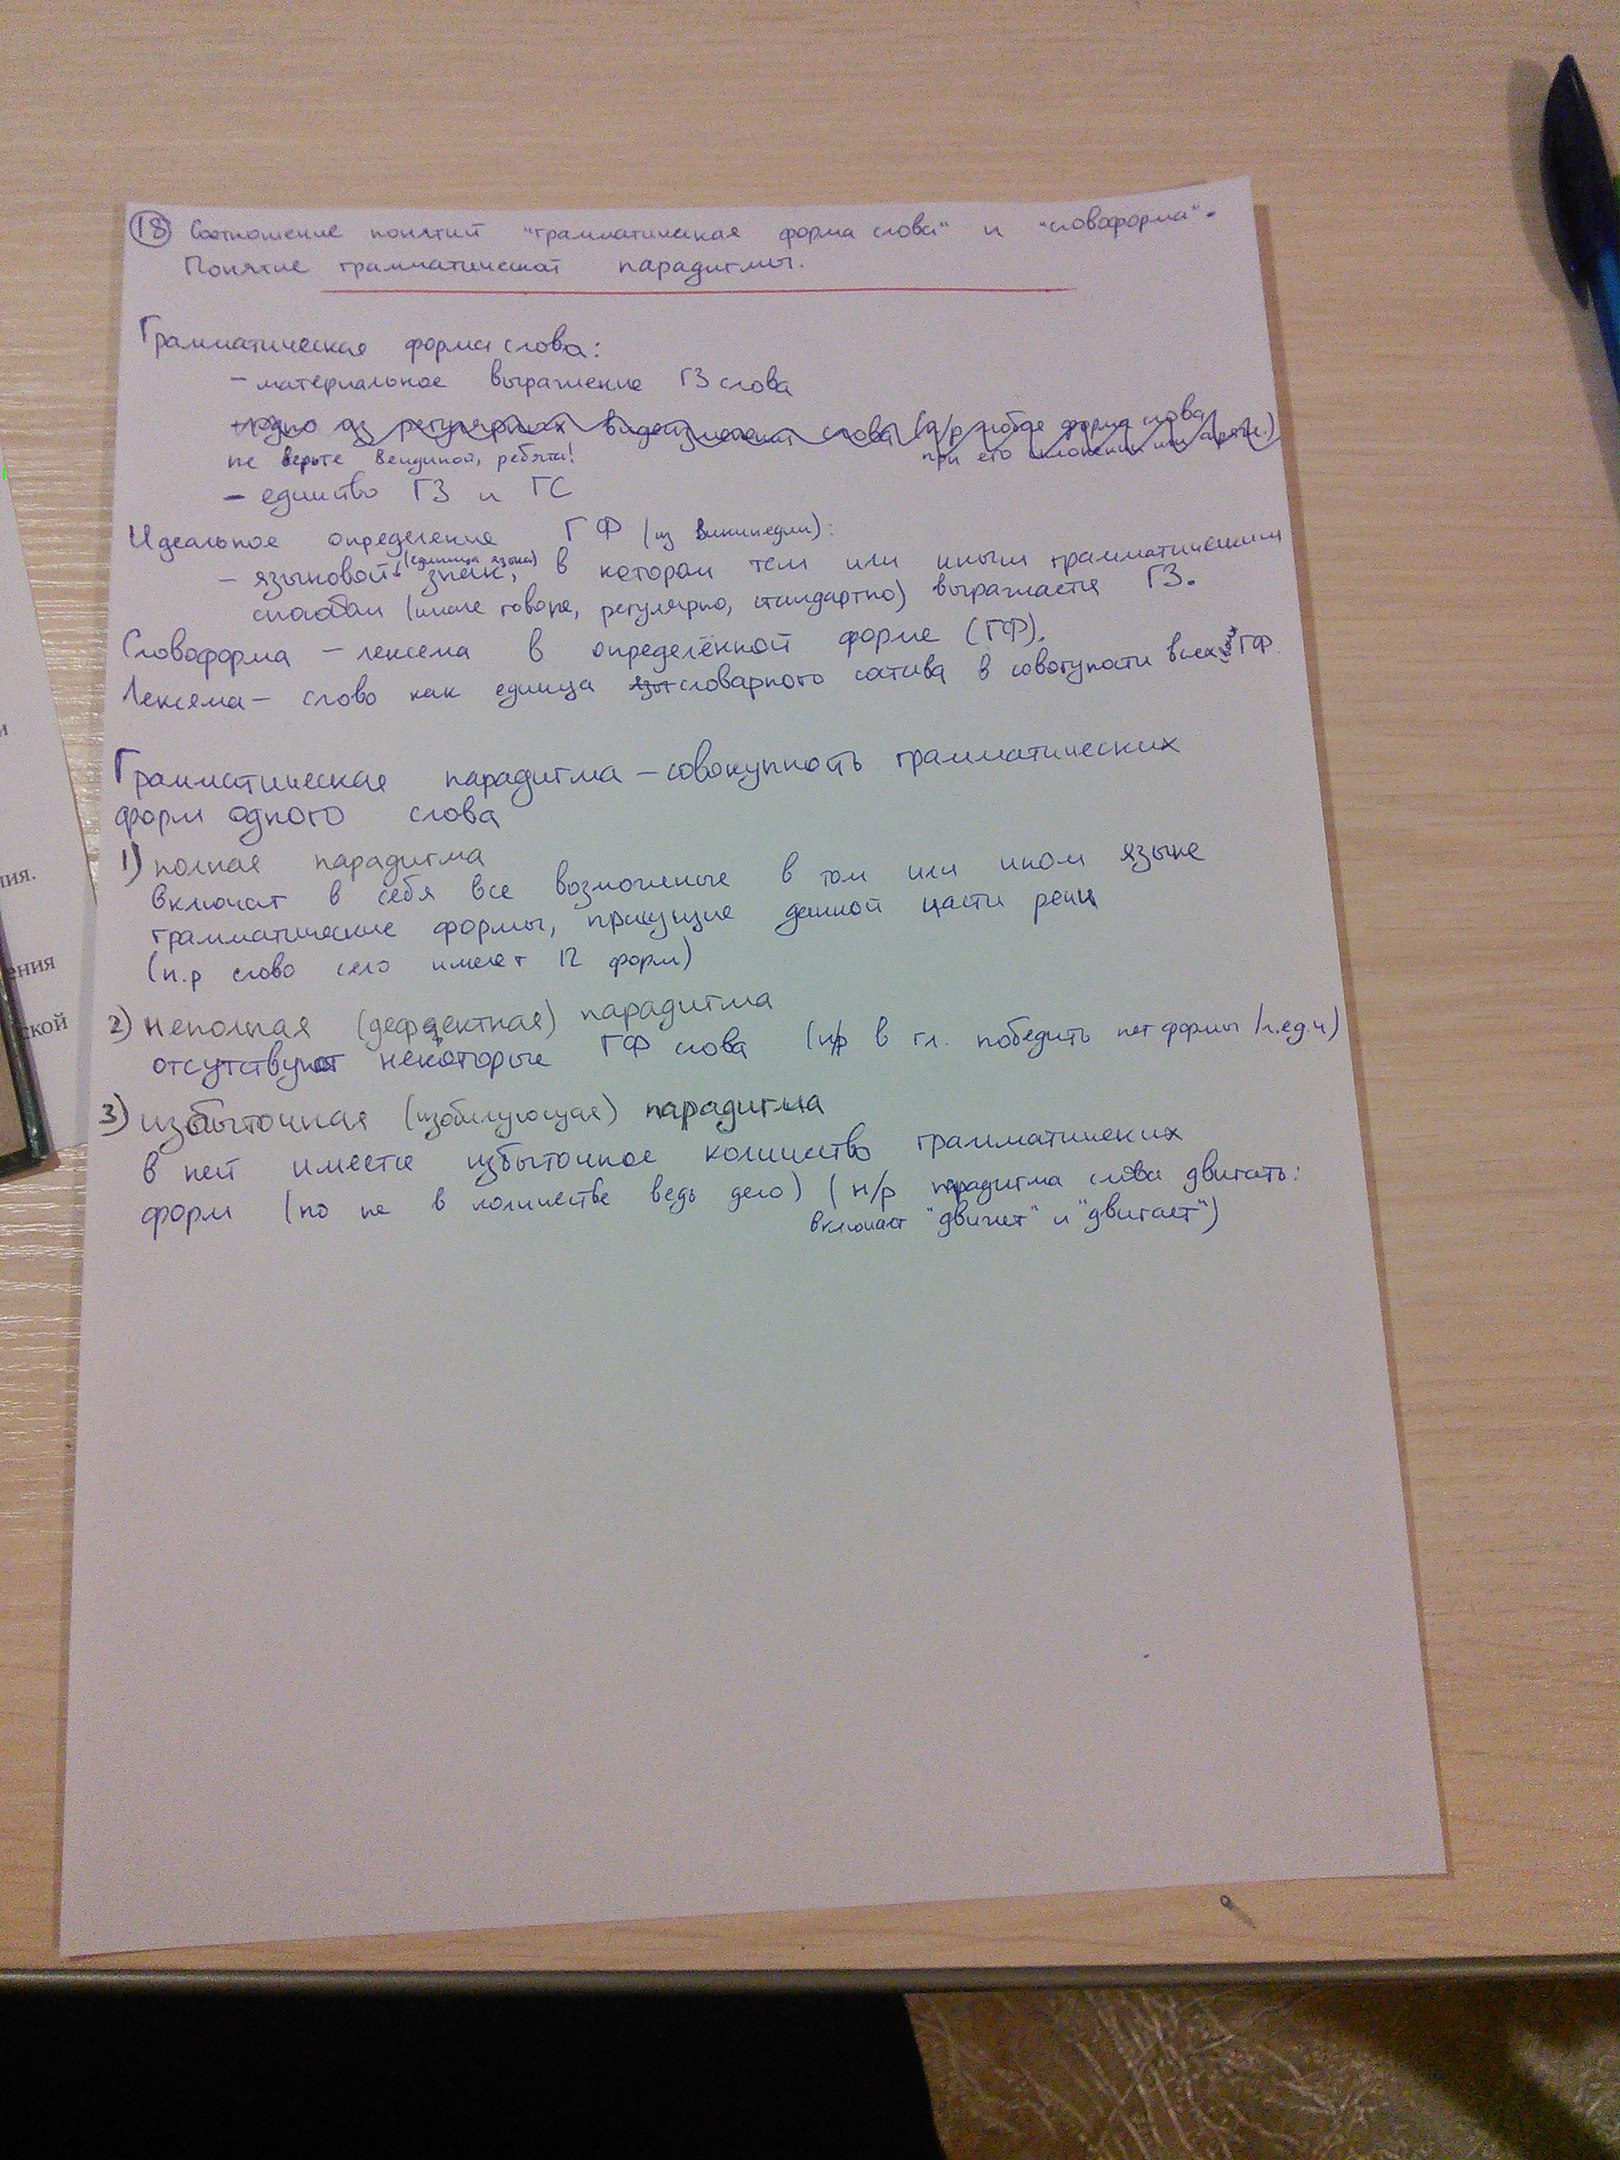 18 Соотношение понятий "грамматическая форма слова" и "словоформа".
Понятие грамматической парадигмы.
Грамматическая форма слова:
- материальное выражение ГЗ слова
- одно из регулярных видоизменений слова (н/р любая форма слова
при его склонении или спряж.)
не верьте Вендиной, ребята!
- единство ГЗ и ГС
Идеальное определение ГФ (из Википедии):
- языковой (единица языка) знак, в котором тем или иным грамматическим
способом (иначе говоря, регулярно, стандартно) выражается ГЗ.
Словоформа - лексема в определённой форме (ГФ).
Лексема - слово как единица словарного состава в совокупности всех ГФ
Грамматическая парадигма - совокупность грамматических
форм одного слова
1) полная парадигма
включает в себя все возможные в том или ином языке
грамматические формы, присущие данной части речи
(н.р слово село имеет 12 форм)
2) неполная (дефектная) парадигма
отсутствуют некоторые ГФ слова (н/р в гл. победить нет формы 1л.ед.ч)
3) избыточная (изобилующая) парадигма
в ней имеется избыточное количество грамматических
форм (но не в количестве ведь дело) (н/р парадигма слова двигать:
включает "движет" и "двигает")
ния.
ения
ской